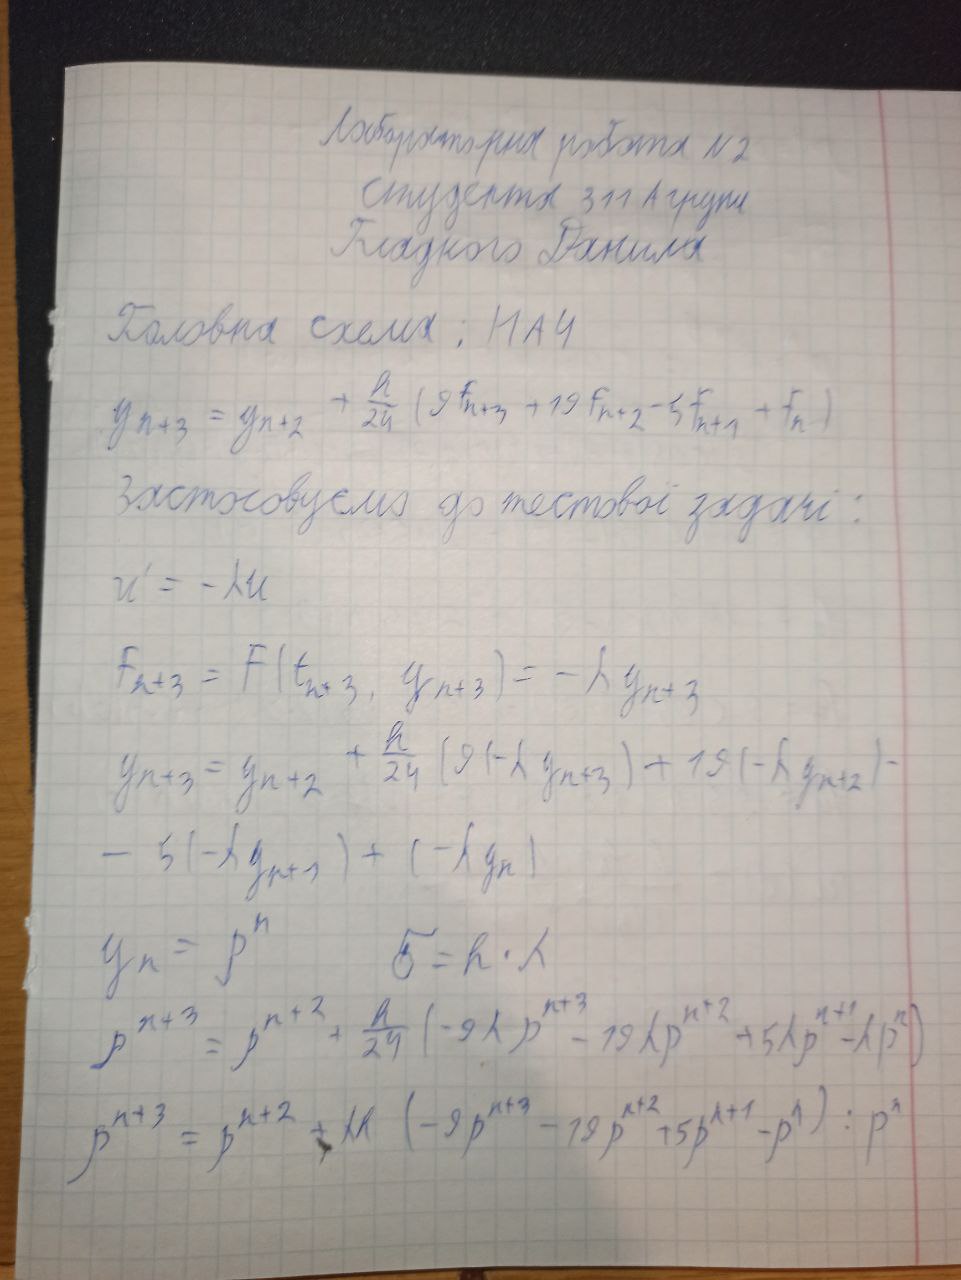 Лабораторна робота N2
Студента 311 А групи
Гладкого Данила
Головна схема: НАЧ
y_{n+3} = y_{n+2} + h/24 (9F_{n+3} + 19F_{n+2} - 5F_{n+1} + F_n)
Застосовуємо до тестової задачі:
u' = -λu
F_{n+3} = F(t_{n+3}, y_{n+3}) = -λy_{n+3}
y_{n+3} = y_{n+2} + h/24 (9(-λy_{n+3}) + 19(-λy_{n+2}) -
- 5(-λy_{n+1}) + (-λy_n)
y_n = p^n σ = h·λ
p^{n+3} = p^{n+2} + h/24 (-9λp^{n+3} - 19λp^{n+2} + 5λp^{n+1} - λp^n)
p^{n+3} = p^{n+2} + λh (-9p^{n+3} - 19p^{n+2} + 5p^{n+1} - p^n) : p^n